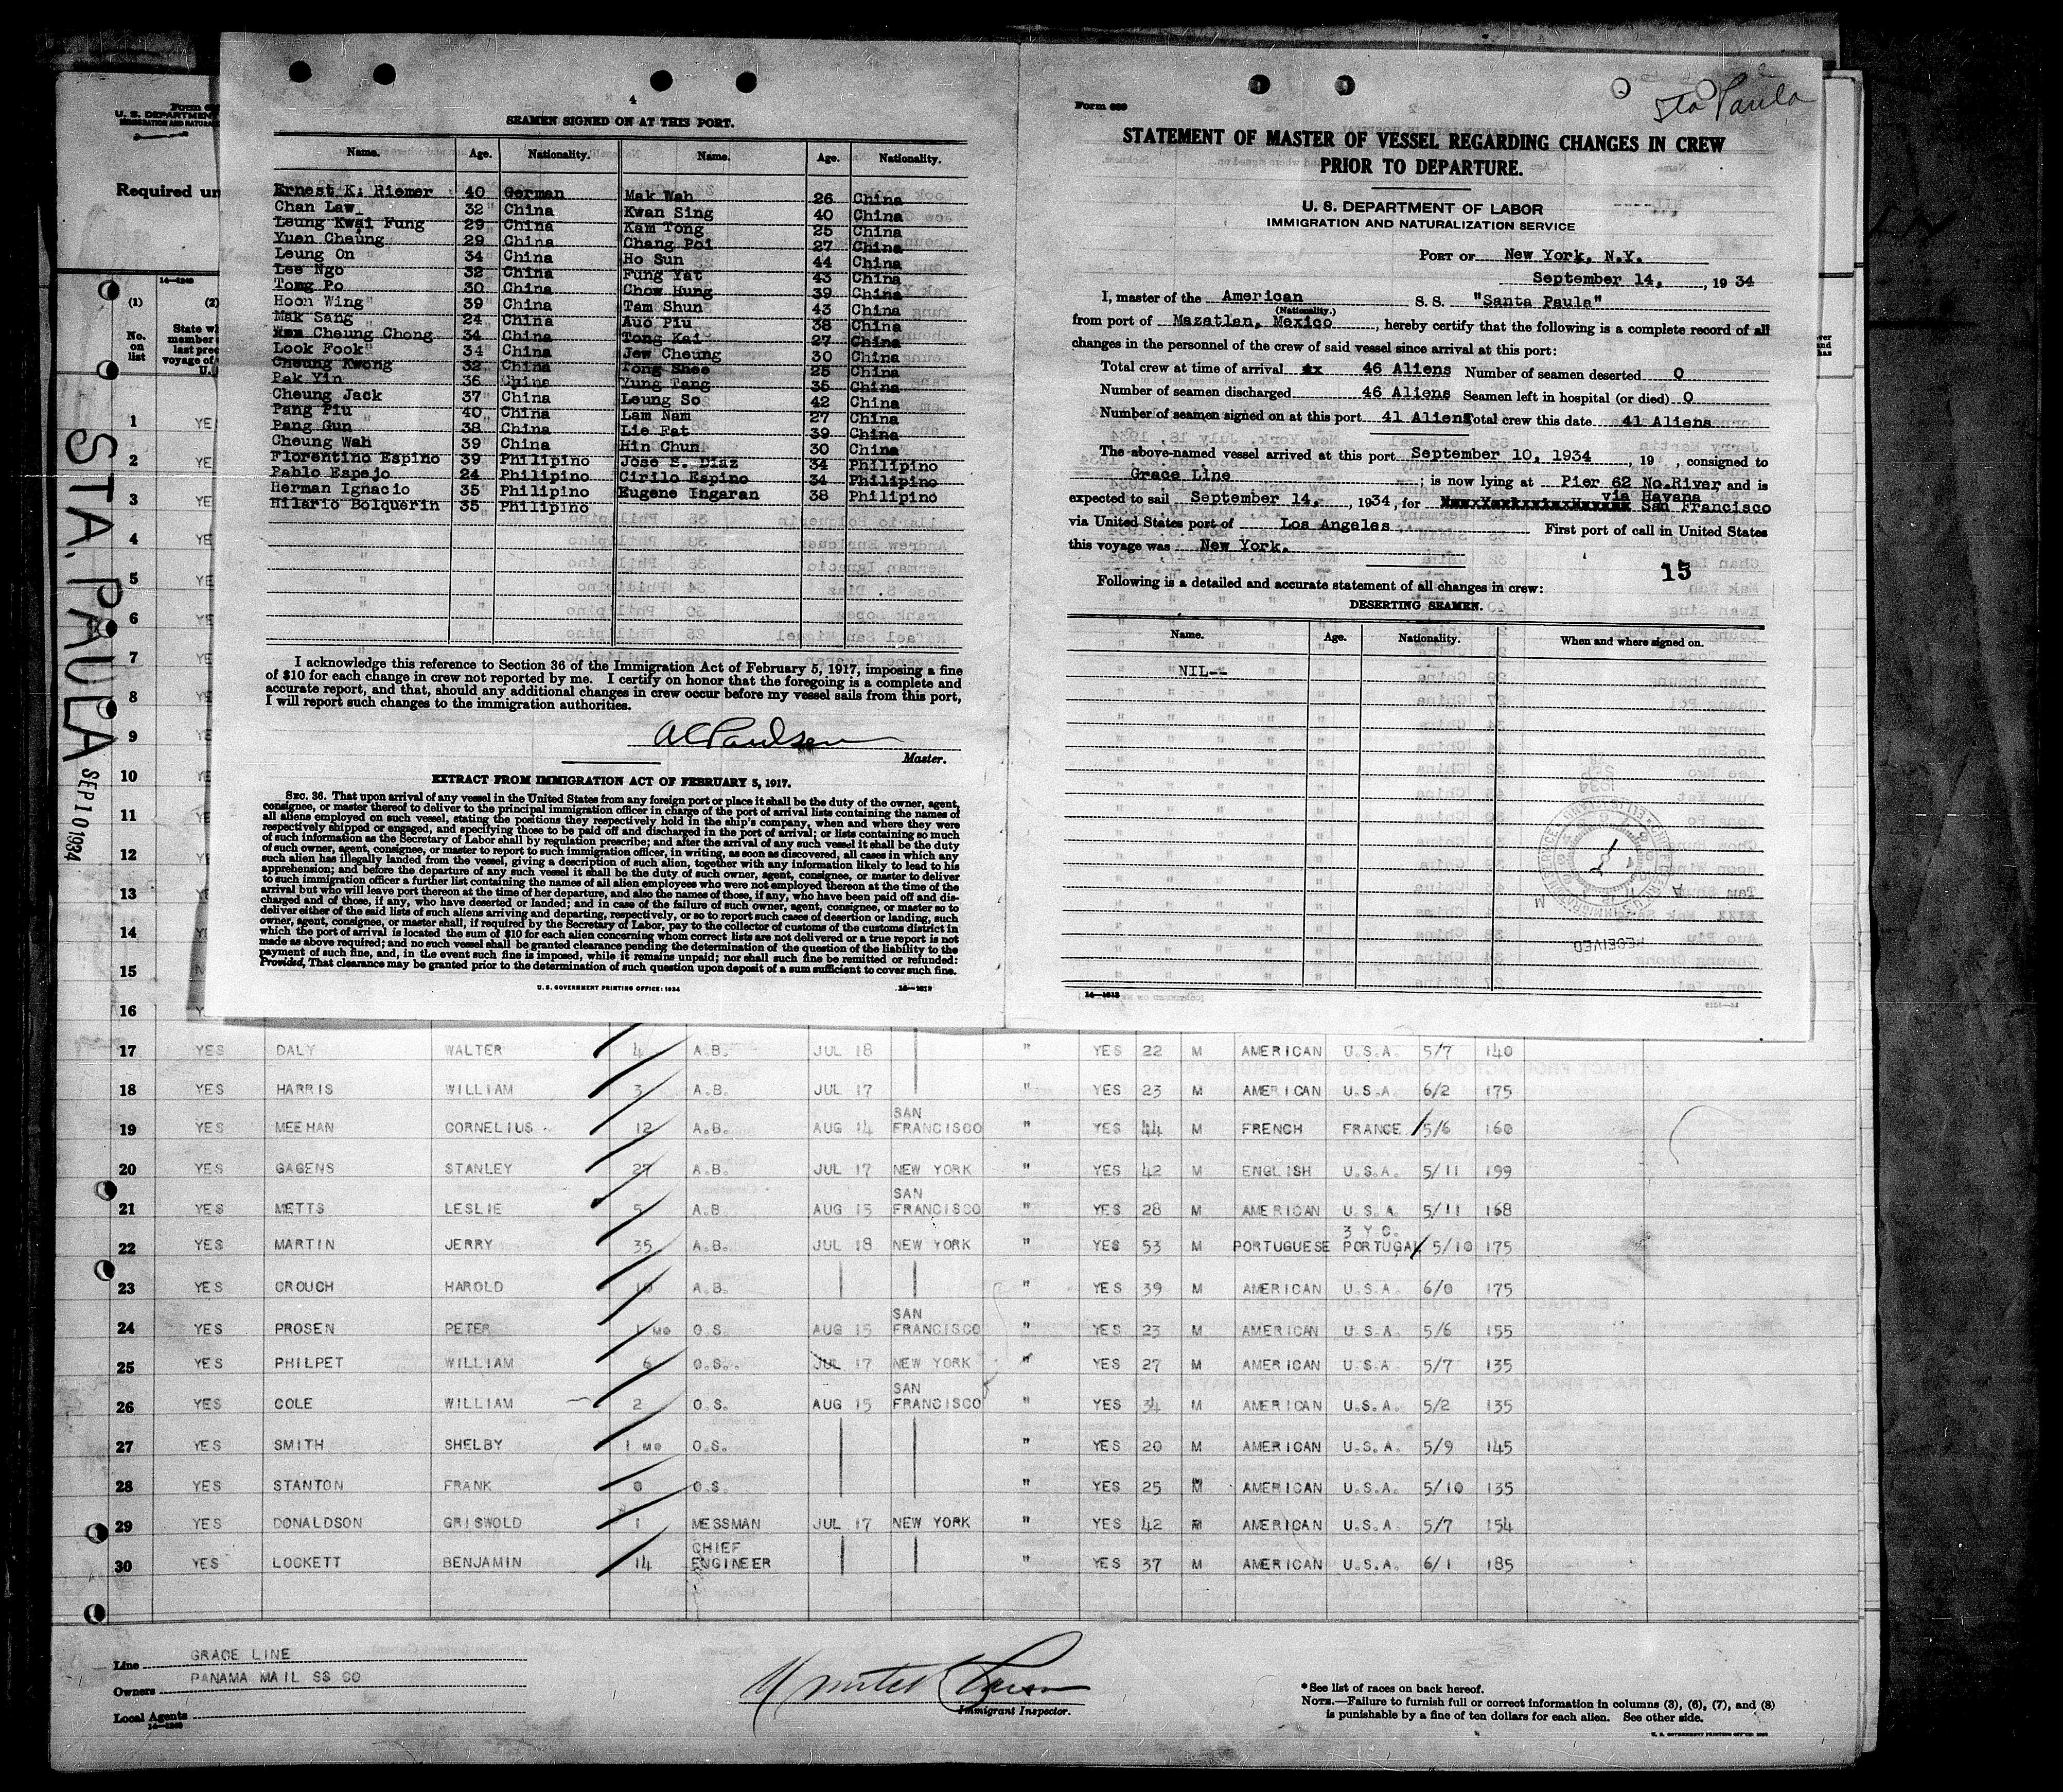 4
SEAMEN SIGNED ON AT THIS PORT.
Name. Age. Nationality. Name. Age. Nationality.
Ernest K. Riemer 40 German Mak Wah 26 China
Chan Law 32 China Kwan Sing 40 China
Leung Kwai Fung 29 China Kam Tong 25 China
Yuen Cheung 29 China Chang Poi 27 China
Leung On 34 China Ho Sun 44 China
Lee Ngo 32 China Fung Yat 43 China
Tong Po 30 China Chow Hung 39 China
Hoon Wing 39 China Tam Shun 43 China
Mak Sang 24 China Auo Piu 38 China
Cheung Chong 34 China Tong Kai 27 China
Look Fook 34 China Jew Cheung 30 China
Cheung Kwong 32 China Tong Shee 25 China
Pak Yin 36 China Yung Tang 35 China
Cheung Jack 37 China Leung So 42 China
Pang Piu 40 China Lam Nam 27 China
Pang Gun 38 China Lie Fat 39 China
Cheung Wah 39 China Hin Chun 30 China
Florentino Espino 39 Philipino Jose S. Diaz 34 Philipino
Pablo Espejo 24 Philipino Cirilo Espino 34 Philipino
Herman Ignacio 35 Philipino Eugene Ingaran 38 Philipino
Hilario Bolquerin 35 Philipino
I acknowledge this reference to Section 36 of the Immigration Act of February 5, 1917, imposing a fine
of $10 for each change in crew not reported by me. I certify on honor that the foregoing is a complete and
accurate report, and that, should any additional changes in crew occur before my vessel sails from this port,
I will report such changes to the immigration authorities.
AC Paulsen
Master.
EXTRACT FROM IMMIGRATION ACT OF FEBRUARY 5, 1917.
SEC. 36. That upon arrival of any vessel in the United States from any foreign port or place it shall be the duty of the owner, agent,
consignee, or master thereof to deliver to the principal immigration officer in charge of the port of arrival lists containing the names of
all aliens employed on such vessel, stating the positions they respectively hold in the ship's company, when and where they were
respectively shipped or engaged, and specifying those to be paid off and discharged in the port of arrival; or lists containing so much
of such information as the Secretary of Labor shall by regulation prescribe; and after the arrival of any such vessel it shall be the duty
of such owner, agent, consignee, or master to report to such immigration officer, in writing, as soon as discovered, all cases in which any
such alien has illegally landed from the vessel, giving a description of such alien, together with any information likely to lead to his
apprehension; and before the departure of any such vessel it shall be the duty of such owner, agent, consignee, or master to deliver
to such immigration officer a further list containing the names of all alien employees who were not employed thereon at the time of the
arrival but who will leave port thereon at the time of her departure, and also the names of those, if any, who have been paid off and dis-
charged and of those, if any, who have deserted or landed; and in case of the failure of such owner, agent, consignee, or master so to
deliver either of the said lists of such aliens arriving and departing, respectively, or so to report such cases of desertion or landing, such
owner, agent, consignee, or master shall, if required by the Secretary of Labor, pay to the collector of customs of the customs district in
which the port of arrival is located the sum of $10 for each alien concerning whom correct lists are not delivered or a true report is not
made as above required; and no such vessel shall be granted clearance pending the determination of the question of the liability to the
payment of such fine, and, in the event such fine is imposed, while it remains unpaid; nor shall such fine be remitted or refunded:
Provided, That clearance may be granted prior to the determination of such question upon deposit of a sum sufficient to cover such fine.
U. S. GOVERNMENT PRINTING OFFICE: 1934 14—1813
Form 689
Sta Paula
STATEMENT OF MASTER OF VESSEL REGARDING CHANGES IN CREW
PRIOR TO DEPARTURE.
U. S. DEPARTMENT OF LABOR
IMMIGRATION AND NATURALIZATION SERVICE
PORT OF New York, N.Y.
September 14, , 19 34
I, master of the American S. S. "Santa Paula"
(Nationality.)
from port of Mazatlan, Mexico , hereby certify that the following is a complete record of all
changes in the personnel of the crew of said vessel since arrival at this port:
Total crew at time of arrival 46 Aliens Number of seamen deserted 0
Number of seamen discharged 46 Aliens Seamen left in hospital (or died) 0
Number of seamen signed on at this port 41 Aliens Total crew this date 41 Aliens
The above-named vessel arrived at this port September 10, 1934 , 19 , consigned to
Grace Line ; is now lying at Pier 62 No.River and is
via Havana
expected to sail September 14, , 1934, for San Francisco
via United States port of Los Angeles First port of call in United States
this voyage was New York.
15
Following is a detailed and accurate statement of all changes in crew:
DESERTING SEAMEN.
Name. Age. Nationality. When and where signed on.
NIL--
14—1813
RECEIVED
U. S. DEPARTMENT
Required un
14—1240
(1) (2)
No. on list
STA. PAULA SEP 10 1934
1 YE
2 YE
3 YE
4 YE
5 YE
6 YE
7 YE
8 YE
9 YE
10 YE
11 YE
12 YE
13 YE
14
15
16
17 YES DALY WALTER 4 A.B. JUL 18 " YES 22 M AMERICAN U.S.A. 5/7 140
18 YES HARRIS WILLIAM 3 A.B. JUL 17 " YES 23 M AMERICAN U.S.A 6/2 175
19 YES MEEHAN CORNELIUS 12 A.B. AUG 14 SAN FRANCISCO " YES 44 M FRENCH FRANCE 5/6 160
20 YES GAGENS STANLEY 27 A.B. JUL 17 NEW YORK " YES 42 M ENGLISH U.S.A. 5/11 199
21 YES METTS LESLIE 5 A.B. AUG 15 SAN FRANCISCO " YES 28 M AMERICAN U.S.A. 5/11 168
22 YES MARTIN JERRY 35 A.B. JUL 18 NEW YORK " YES 53 M PORTUGUESE 3 Y.C. PORTUGAL 5/10 175
23 YES CROUCH HAROLD 10 A.B. " YES 39 M AMERICAN U.S.A. 6/0 175
24 YES PROSEN PETER 1 MO O.S. AUG 15 SAN FRANCISCO " YES 23 M AMERICAN U.S.A. 5/6 155
25 YES PHILPET WILLIAM 6 O.S. JUL 17 NEW YORK " YES 27 M AMERICAN U.S.A. 5/7 135
26 YES COLE WILLIAM 2 O.S. AUG 15 SAN FRANCISCO " YES 34 M AMERICAN U.S.A. 5/2 135
27 YES SMITH SHELBY 1 MO O.S. " YES 20 M AMERICAN U.S.A. 5/9 145
28 YES STANTON FRANK 0 O.S. " YES 25 M AMERICAN U.S.A. 5/10 135
29 YES DONALDSON GRISWOLD 1 MESSMAN JUL 17 NEW YORK " YES 42 M AMERICAN U.S.A 5/7 154
30 YES LOCKETT BENJAMIN 14 CHIEF ENGINEER " YES 37 M AMERICAN U.S.A. 6/1 185
Line GRACE LINE
Owners PANAMA MAIL SS CO
Local Agents
14—1240
Immigrant Inspector.
*See list of races on back hereof.
NOTE.—Failure to furnish full or correct information in columns (3), (6), (7), and (8)
is punishable by a fine of ten dollars for each alien. See other side.